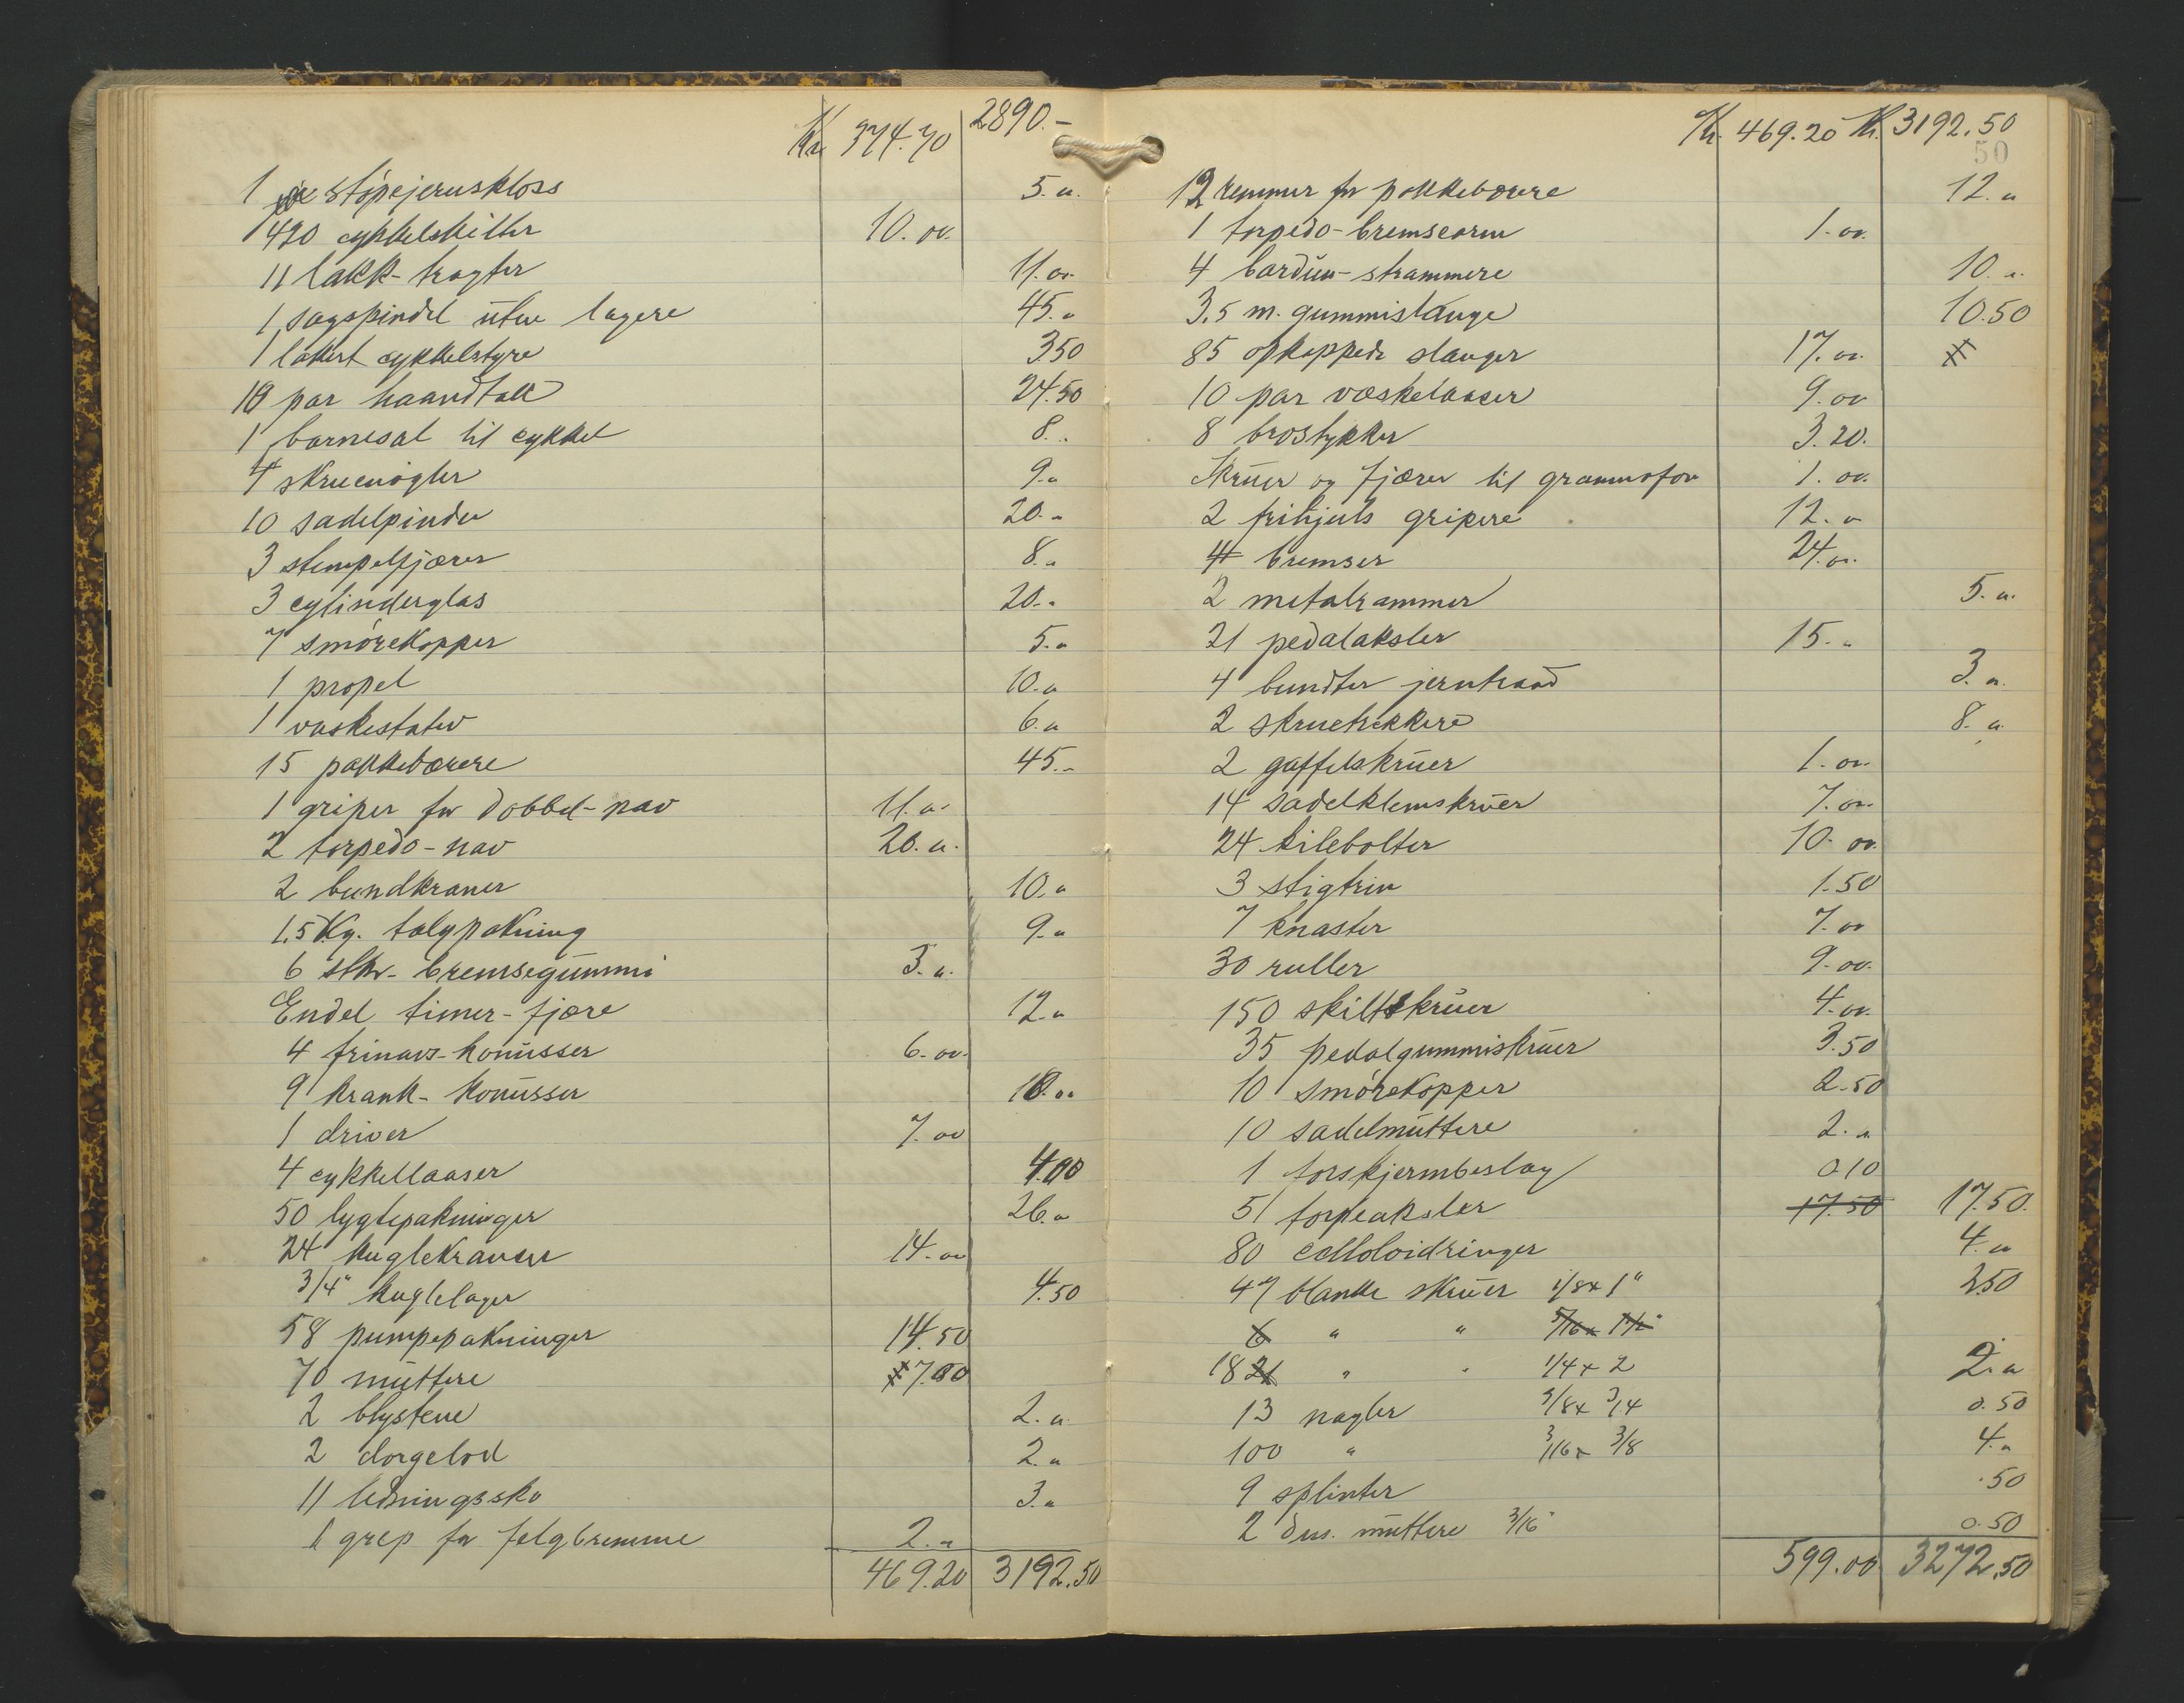 Kr. 374.70 2890.-
1 støpejernskloss 5.-
420 cykkelskilter 10.00
11 lakk-tragter 11.00
1 sagspindel uten lagere 45.-
1 lakert cykkelstyre 3 50
10 par haandtak 24.50
1 barnesal til cykkel 8.-
4 skruenøgler 9.-
10 sadelpinder 20.-
3 stempelfjærer 8.-
3 cylinderglas 20.-
7 smørekopper 5.-
1 propel 10.-
1 vaskestativ 6.-
15 pakkebærere 45.-
1 griper for dobbel-nav 11.-
2 torpedo-nav 20.-
2 bundkraner 10.-
1.5 Kg. talgpakning 9.-
6 stkr- bremsegummi 3.-
Endel timer-fjære 12.-
4 frinavs-konusser 6.00
9 krank-konusser 18.00
1 driver 7.00
4 cykkellaaser 4.00
50 lygtepakninger 26.-
24 kuglekranser 14.00
3/4" kuglelager 4.50
58 pumpepakninger 14.50
70 muttere 7.00
2 blystene 2.-
2 dorgelod 2.-
11 ledningssko 3.-
1 grep for felgbremse 2.-
469.20 3192.50
Kr. 469.20 Kr. 3192.50
50
12 remmer for pakkebærere 12.-
1 torpedo-bremsearm 1.00
4 bardun-strammere 10.-
3.5 m. gummislange 10.50
85 opkappede slanger 17.00
10 par væskelaaser 9.00
8 brostykker 3.20.
Skruer og fjærer til grammofon 1.00
2 frihjuls gripere 12.-
4 bremser 24.00
2 metalrammer 5.-
21 pedalaksler 15.-
4 bundter jerntraad 3.-
2 skruetrekkere 8.-
2 gaffelskruer 1.00
14 sadelklemskruer 7.00
24 kilebolter 10.00
3 stigtrin 1.50
7 knaster 7.00
30 ruller 9.00
150 skiltskruer 4.00
35 pedalgummiskruer 3.50
10 smørekopper 2.50
10 sadelmuttere 2.-
1 forskjermbeslag 0.10
51 torpeaksler 17.50 17.50.
80 celloloidringer 4.-
47 blanke skruer 1/8 x 1" 2.50
6 " " 5/16 x 1 1/2"
18 21 " " 1/4 x 2 2.-
13 nagler 3/8 x 3/4 0.50
100 " 3/16 x 3/8 4.-
9 splinter .50
2 dus. muttere 3/16" 0.50
599.00 3272.50